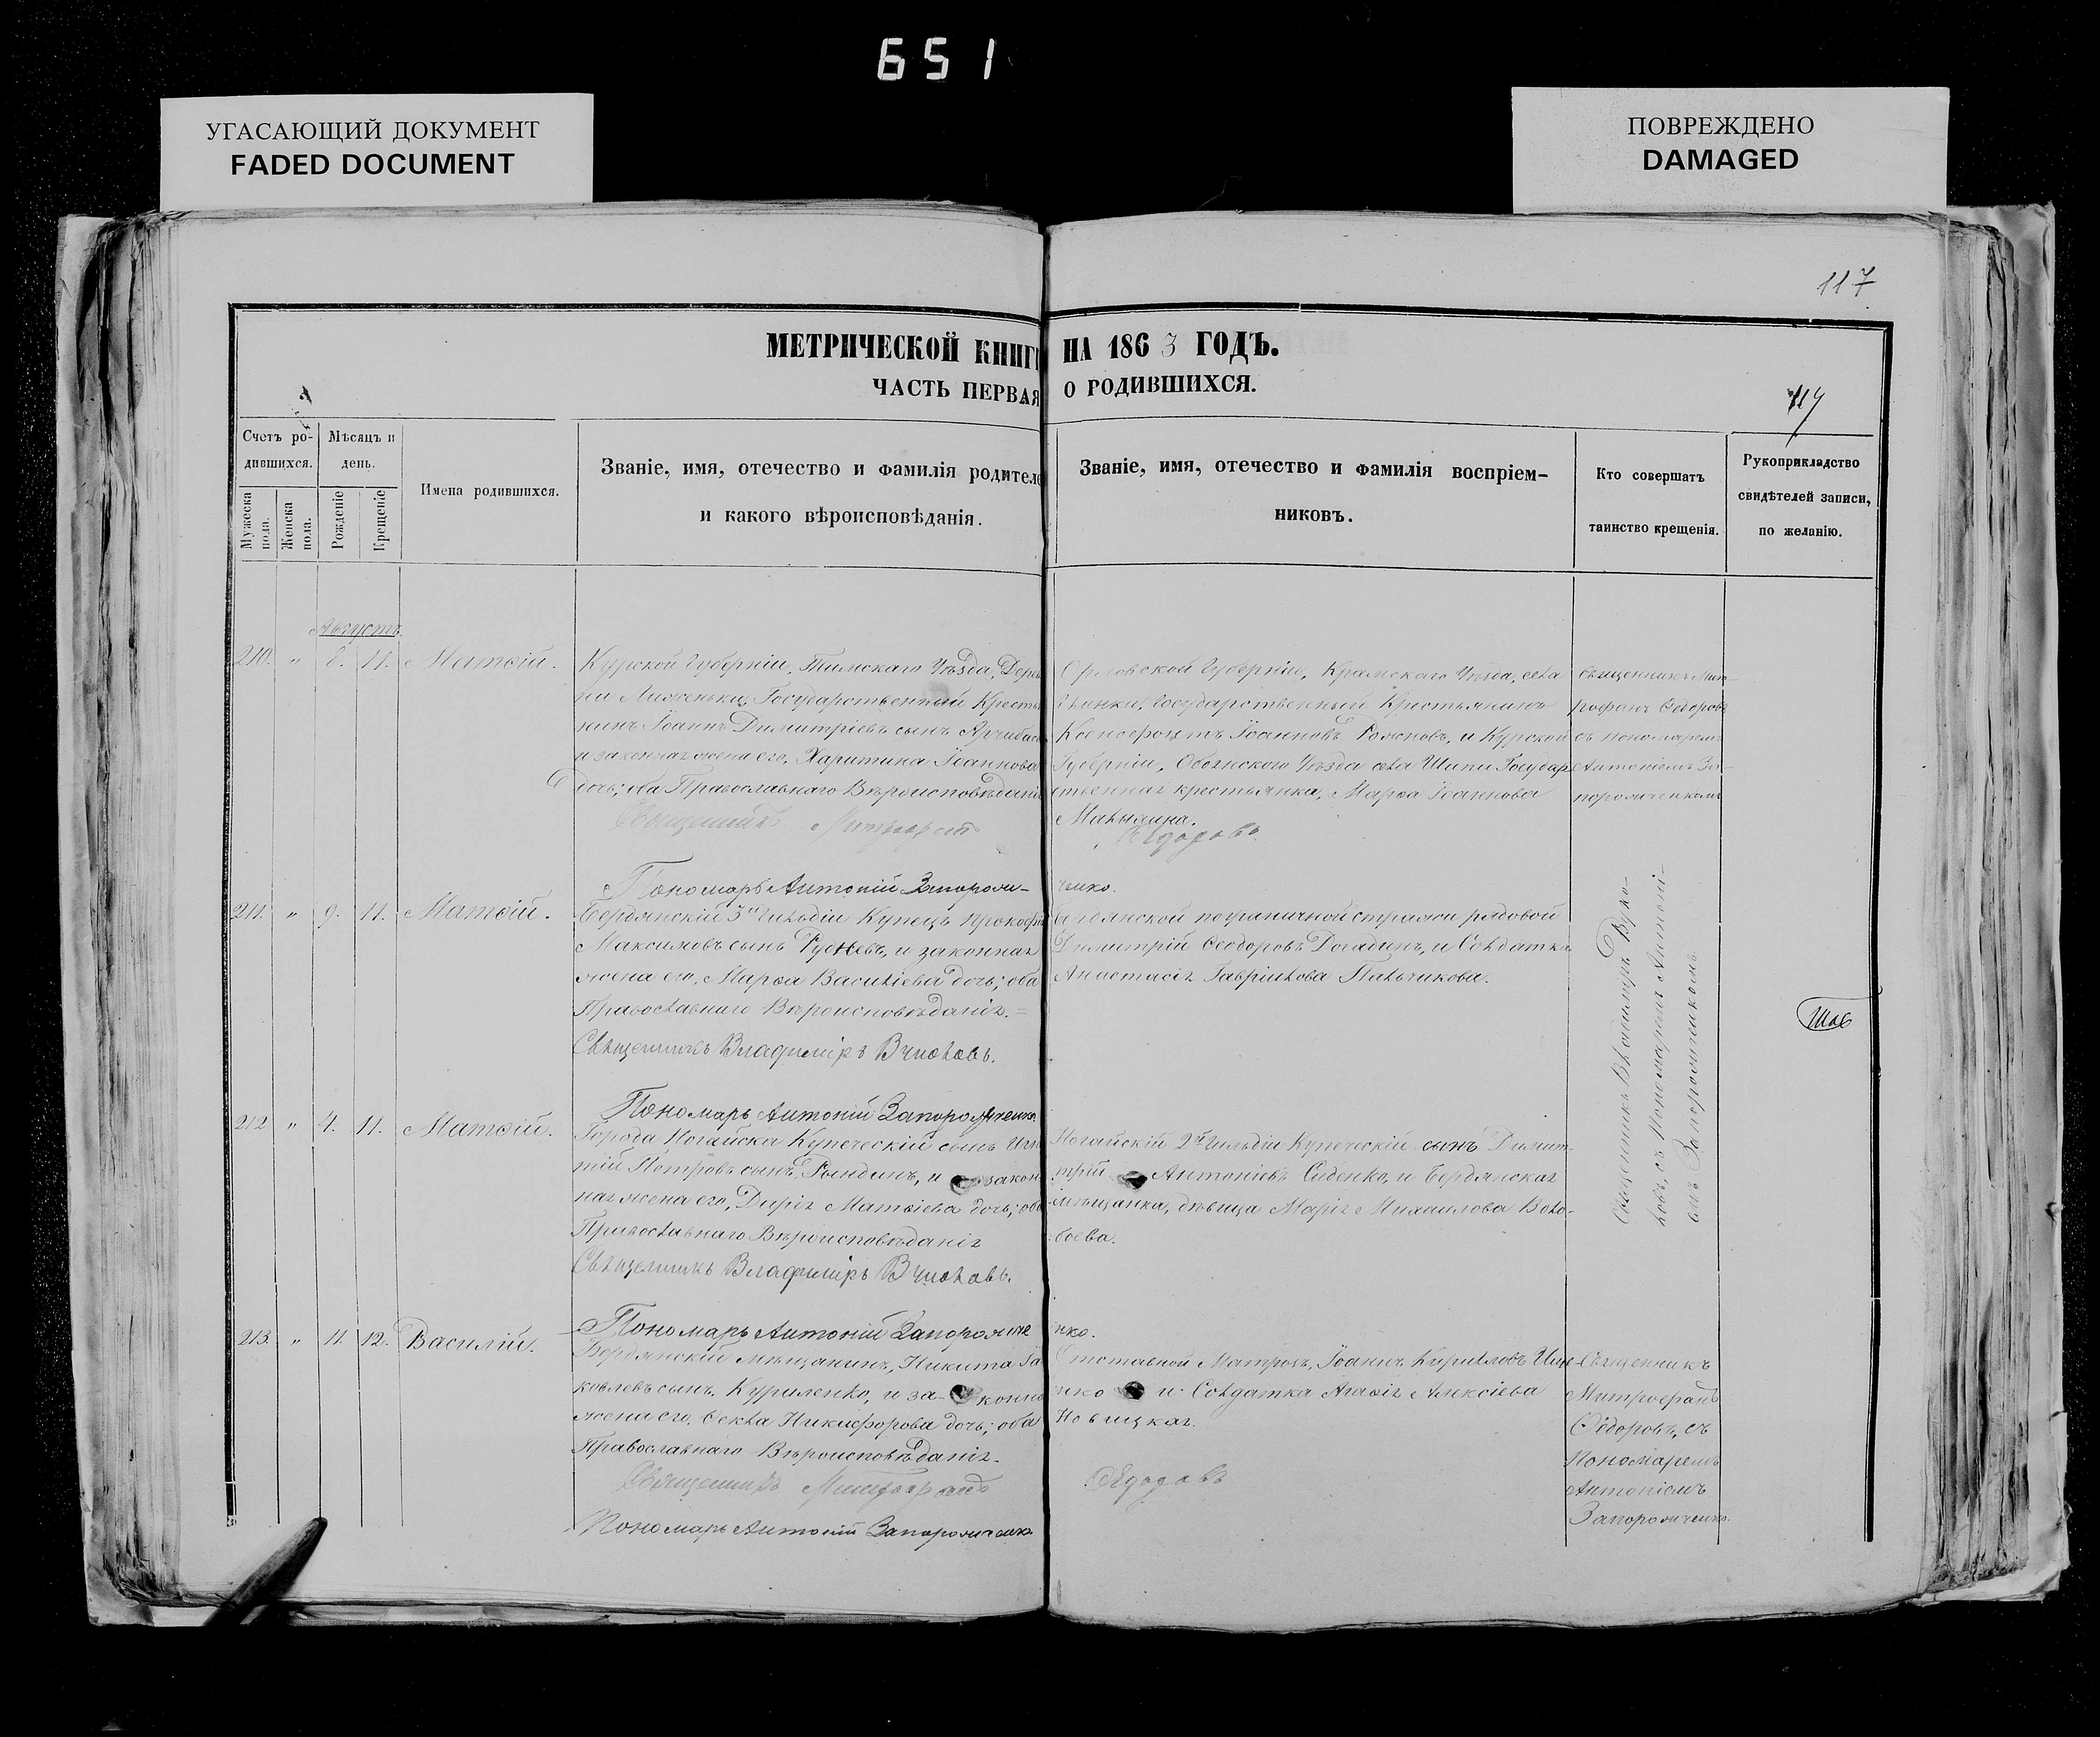 651
УГАСАЮЩИЙ ДОКУМЕНТ
FADED DOCUMENT
ПОВРЕЖДЕНО
DAMAGED
117
МЕТРИЧЕСКОЙ КНИГ НА 1863 ГОДЪ.
ЧАСТЬ ПЕРВАЯ О РОДИВШИХСЯ.
Счетъ ро-
дившихся.
Мужеска пола.
Женска пола.
Мѣсяцъ и
день.
Рожденіе
Крещеніе
Имена родившихся.
Званіе, имя, отечество и фамилія родителе
и какого вѣроисповѣданія.
Званіе, имя, отечество и фамилія воспріем-
никовъ.
Кто совершатъ
таинство крещенія.
Рукоприкладство
свидѣтелей записи,
по желанію.
Августъ
210. " 8. 11. Матѳій.
Курской Губерніи, Тимскаго Уѣзда, Дерев
ни Государственный Кресть
нинъ Іоаннъ Димитріевъ сынъ
и законная жена его, Харитина Іоаннова
дочь; оба Православнаго Вѣроисповѣданія
Священникъ Митрофанъ Ѳедоровъ
Орловской Губерніи, Уѣзда, села
Государственный Крестьянинъ
Ксенофонтъ Іоанновъ и Курской
Губерніи, Обоянскаго Уѣзда села Шипы Государ
ственная крестьянка, Марѳа Іоаннова
священникъ Мит-
рофанъ Ѳедоровъ
съ пономаремъ
Антоніемъ За-
порожченкомъ
Пономарь Антоній Запорож-
ченко.
211. " 9. 11. Матѳій.
Бердянскій 3й Гильдіи Купецъ Прокофій
Максимовъ сынъ Рудневъ, и законная
жена его, Марѳа Василіева дочь; оба
Православнаго Вѣроисповѣданія.
Священникъ Владиміръ
Бердянской пограничной стражи рядовой
Димитрій Ѳеодоровъ Догадинъ, и Солдатка
Анастасія Гавріилова Пальчикова.
Священникъ Владиміръ Вуко-
ловъ, съ Пономаремъ Антоні-
емъ Запорожченкомъ
Пономарь Антоній Запорожченко
212 " 4. 11. Матѳій.
Города Ногайска Купеческій сынъ Игна
тій Петровъ сынъ Рындинъ, и закон
ная жена его, Дарія Матѳіева дочь; оба
Православнаго Вѣроисповѣданія
Священникъ Владиміръ
Ногайскій 2й Гильдіи Купеческій сынъ Димит-
трій Антоніевъ Сиденко, и Бердянская
мѣщанка, дѣвица Марія Михаилова Воло-
боева.
Пономарь Антоній Запорожче
нко.
213. " 11. 12. Василій.
Бердянскій мѣщанинъ, Никита Іа
ковлевъ сынъ Куриленко, и за- конна
жена его, Ѳекла Никифорова дочь; оба
Православнаго Вѣроисповѣданія.
Священникъ Митрофанъ Ѳедоровъ
Отставной Матросъ, Іоаннъ Кириловъ
нко и Солдатка Агаѳія Алексіева
Новицкая.
Священникъ
Митрофанъ
Ѳедоровъ, съ
Пономаремъ
Антоніемъ
Запорожченко.
Пономарь Антоній Запорожченко